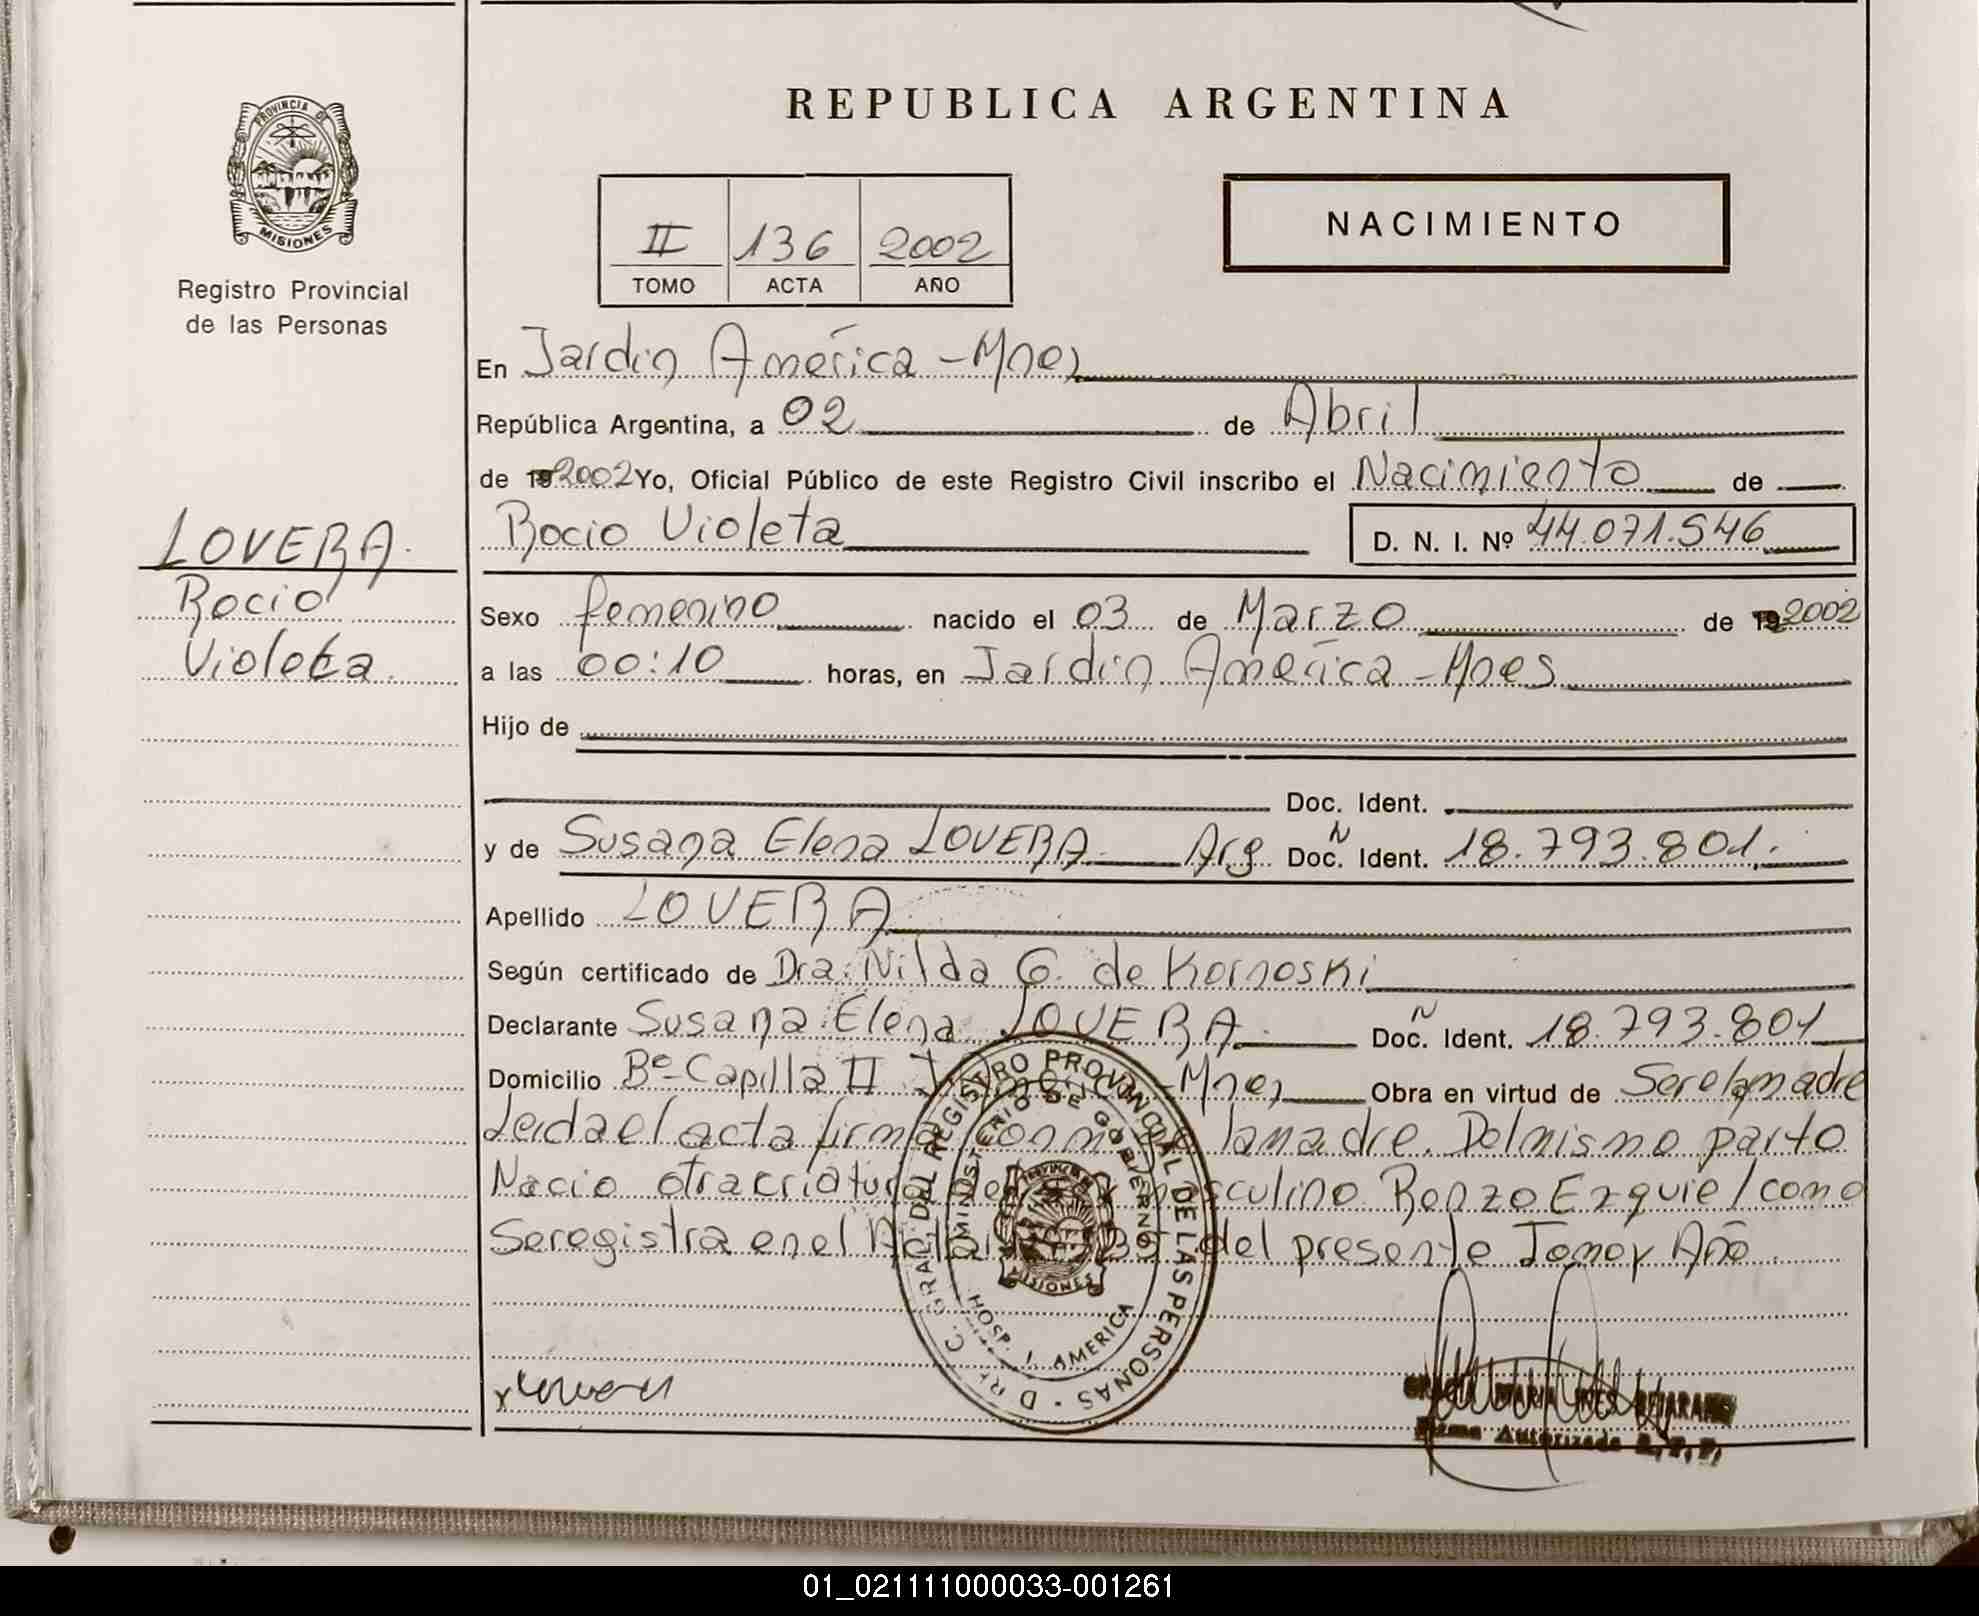 PROVINCIA DE
MISIONES
Registro Provincial
de las Personas
LOVERA.
Rocio
Violeta.
REPUBLICA ARGENTINA
II 136 2002
TOMO ACTA AÑO
NACIMIENTO
En Jardin América - Mnes
República Argentina, a 02 de Abril
de 19 2002 Yo, Oficial Público de este Registro Civil inscribo el Nacimiento de
Rocio Violeta D. N. I. Nº 44.071.546
Sexo femenino nacido el 03 de Marzo de 19 2002
a las 00:10 horas, en Jardin América - Mnes
Hijo de
Doc. Ident.
y de Susana Elena LOVERA Arg Doc. N Ident. 18.793.801.
Apellido LOVERA
Según certificado de Dra. Nilda G. de Kornoski
Declarante Susana Elena LOVERA. Doc. N Ident. 18.793.801
Domicilio Bº Capilla II - Mnes Obra en virtud de Ser la madre
Leida el acta firma la madre. Del mismo parto
Nacio otra criatura masculino Renzo Ezequiel como
Se registra en el del presente Tomo y Año.
DIREC. GRAL. DEL REGISTRO PROVINCIAL DE LAS PERSONAS
MINISTERIO DE GOBIERNO
PROVINCIA DE
MISIONES
HOSP. J. AMERICA
MARIA INES
Firma Autorizada R.P.P.
01_021111000033-001261